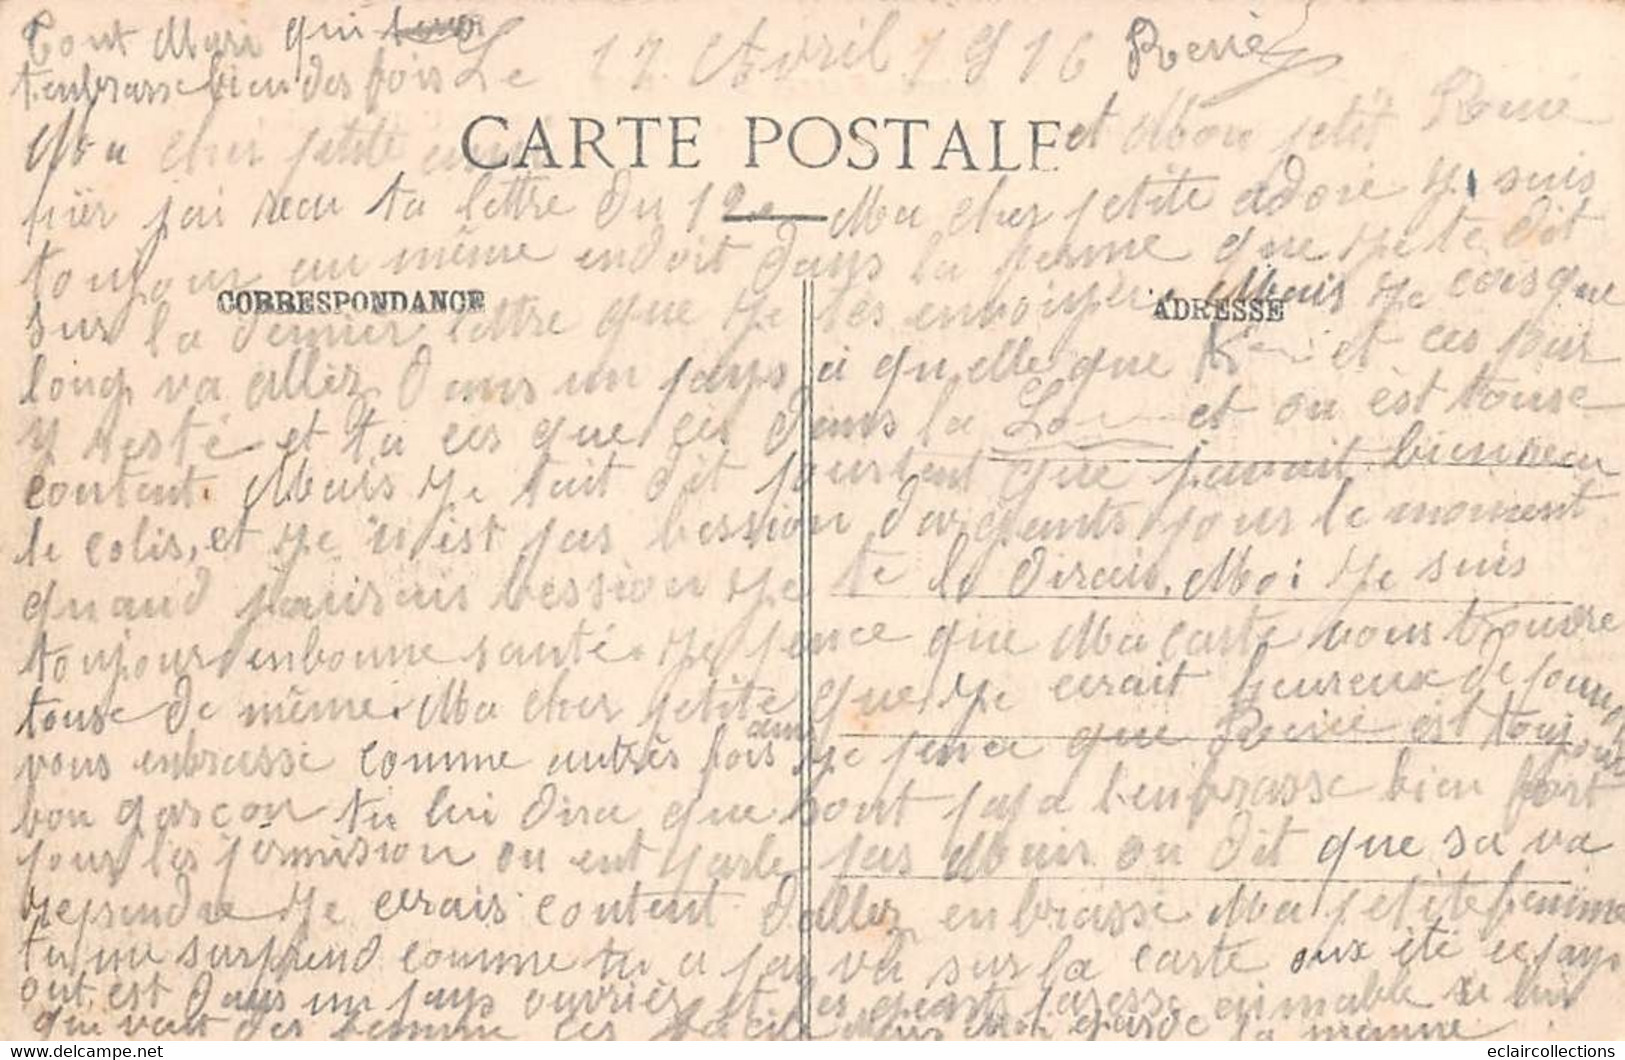 Tont Mari qui
t'enbrasse bien des fois Le 17 Avril 1916 René
CARTE POSTALE
Ma cher petite et Mon petit René
hiër jai recu ta lettre du 12. Ma cher petite adoré je suis
toujour au même endoit dans la ferme que je te dit
CORRESPONDANCE
ADRESSE
sur la dernier lettre que je tes envoiyer. Mais je cois que
long va allez dans un pays a quelle que et ces pour
y resté et ta ces que ces dans la et on est touse
content. Mais je tait dit pourtent que javait bien recu
le colis, et je n'est pas bession d'argents pour le moment
quand jaurais bession je te le dirais. Moi je suis
toujour en bonne santé. je pence que Ma carte vous trouvre
touse de même. Ma cher petite que je cerait heureux de pouvoir
vous enbrasse comme autres fois je pence que René est toujour
bon garçon tu lui dira que sont papa l'enbrasse bien fort
pour les permission on ent parle pas Mais on dit que sa va
reprendre je cerais content d'allez enbrasse Ma petite femme
tu me surprend comme tu a pas vu sur la carte oux été ce pays
ont est dans un pays ouvriér et les gents
qui des femme ces
eclaircollections@delcampe.net
eclaircollections